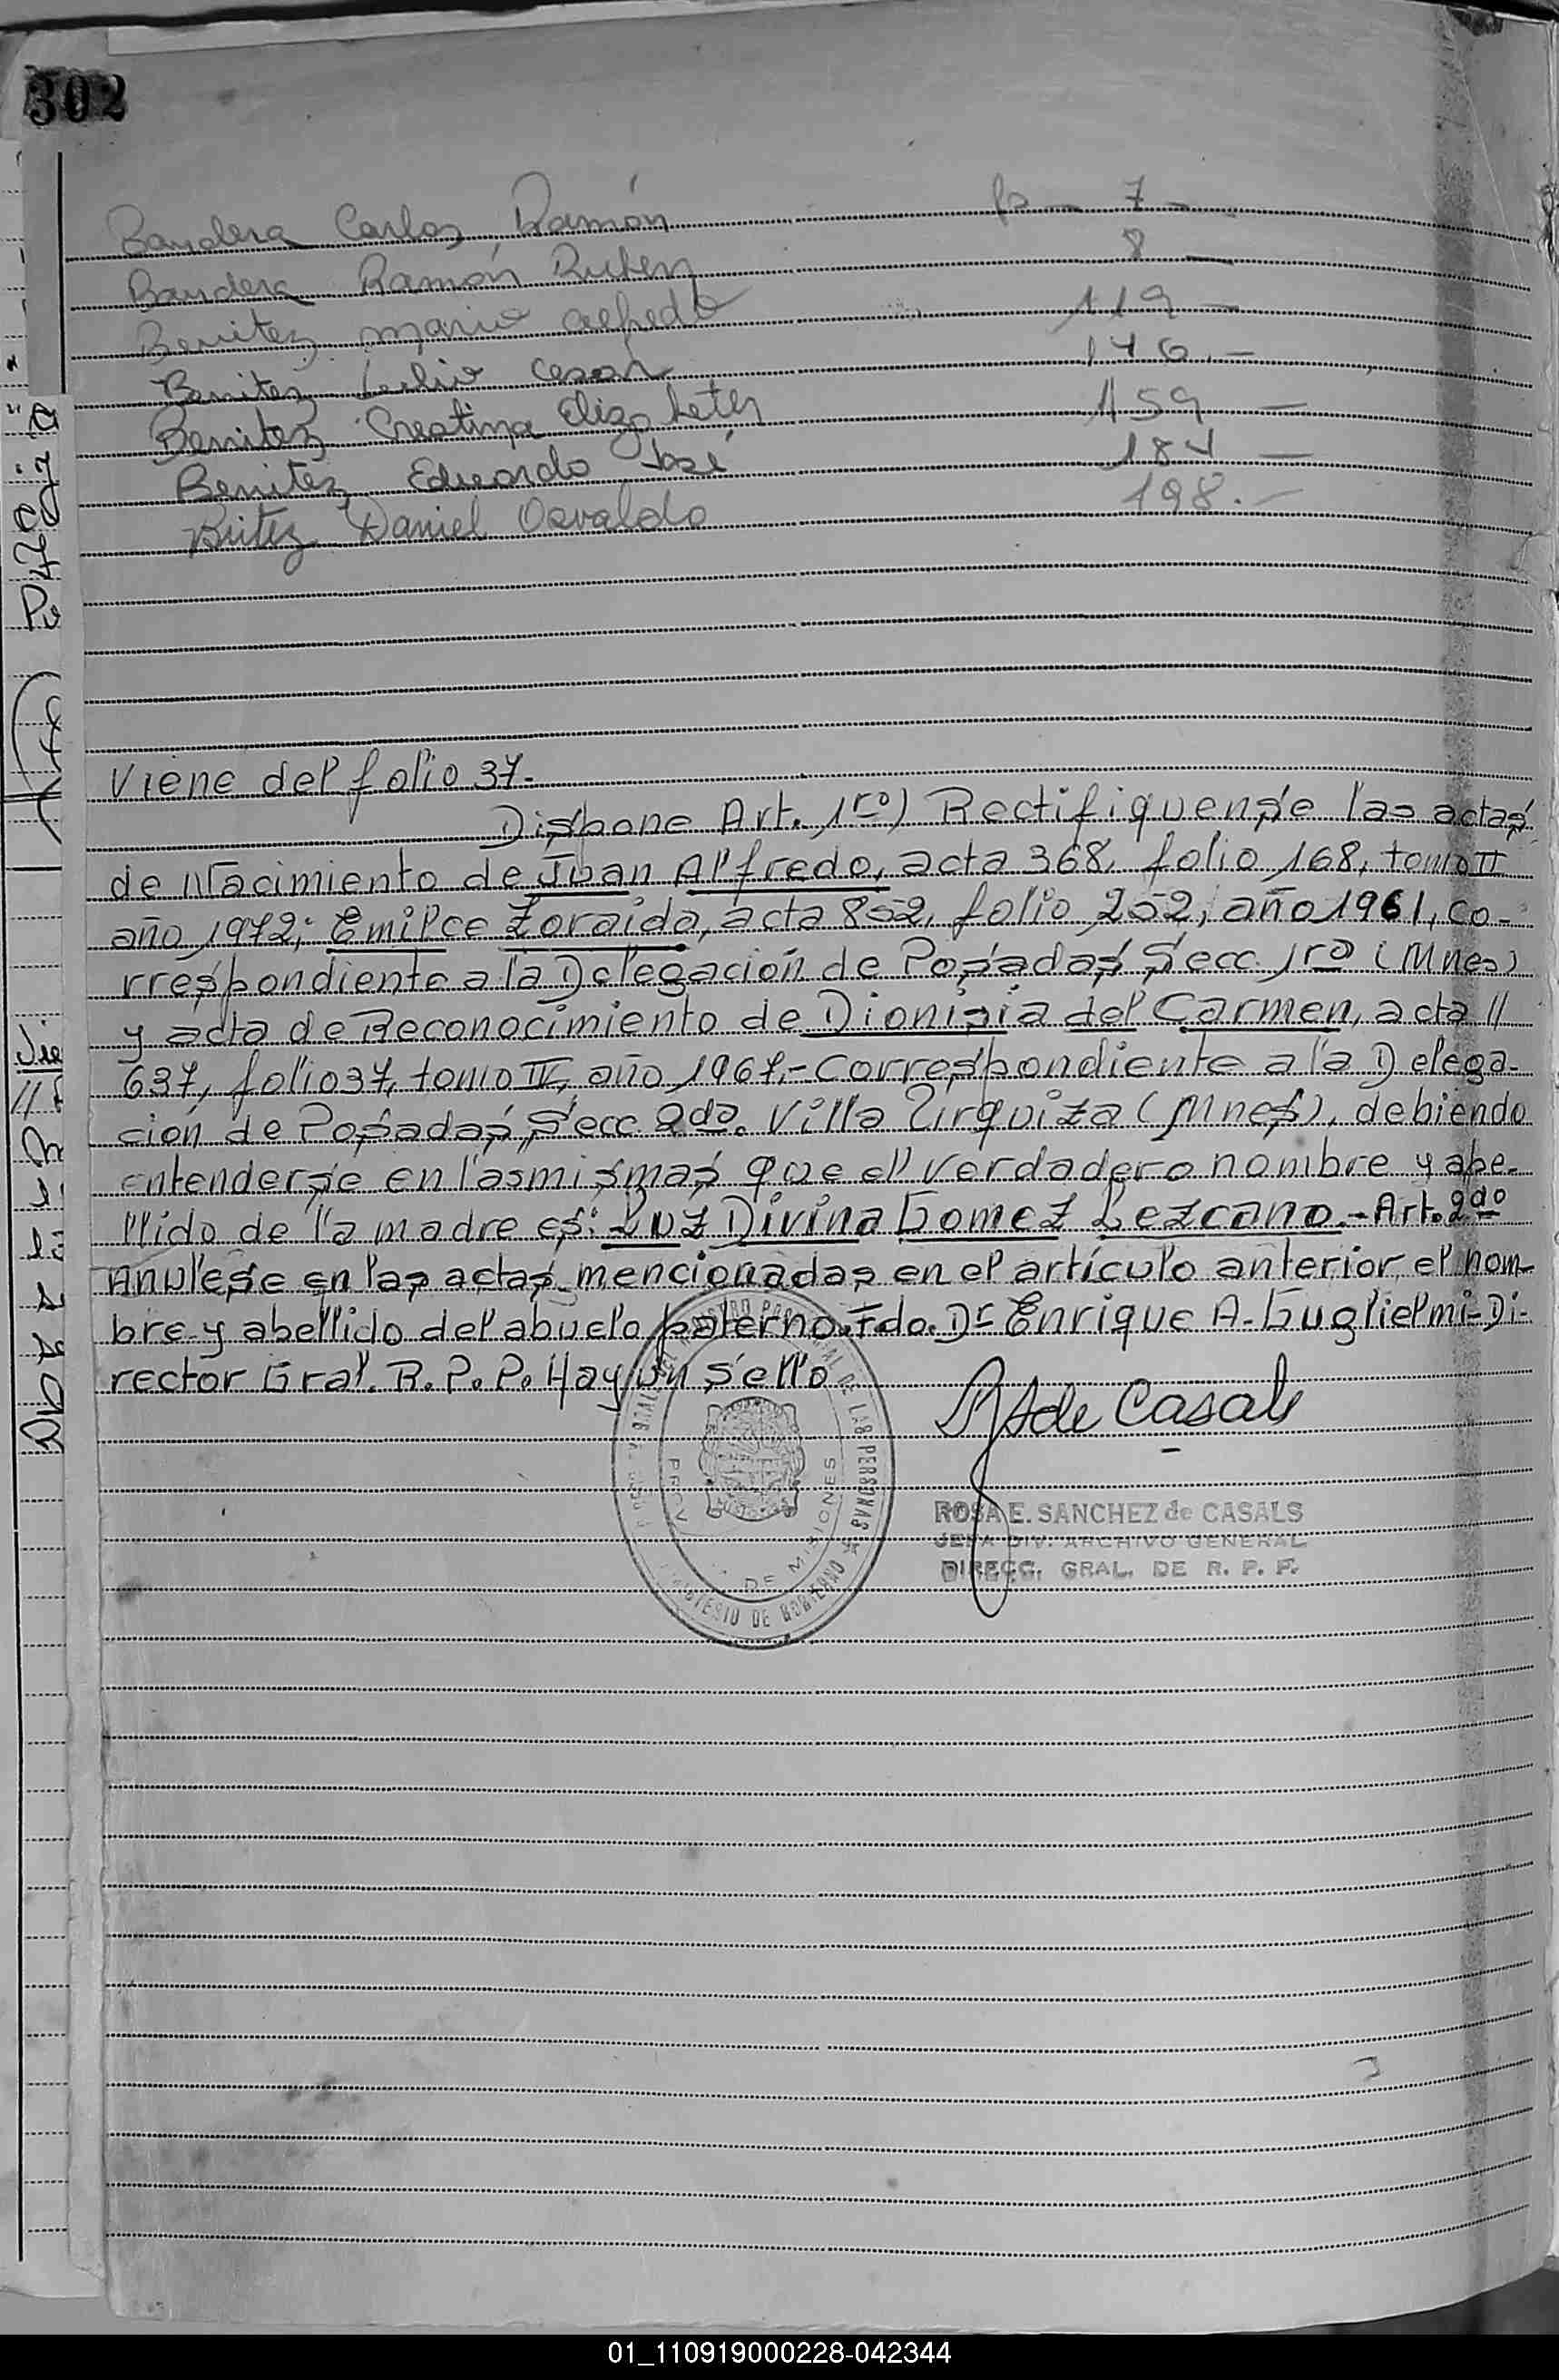 302
Bandera Carlos Ramón fs — 7 —
Bandera Ramón Ruben 8 —
Benitez Mario Alfredo 119 —
Benitez Cesar 146.—
Benitez Cristina Elizabeth 159 —
Benitez Eduardo José 184 —
Daniel Osvaldo 198.—
Viene del folio 37.-
Dispone Art. 1ro) Rectifiquense las actas
de Nacimiento de Juan Alfredo, acta 368, folio 168, tomo II
año 1972; Emilce Zoraida, acta 852, folio 252, año 1961, co-
rrespondiente a la Delegación de Posadas Secc 1ra (Mnes)
y acta de Reconocimiento de Dionisia del Carmen, acta //
637, folio 37, tomo IV, año 1967.- Correspondiente a la Delega-
ción de Posadas, Secc 2da. Villa Urquiza (Mnes), debiendo
entenderse en las mismas que el verdadero nombre y ape-
llido de la madre es: Luz Divina Gomez Lezcano.- Art. 2do
Anulese en las actas mencionadas en el artículo anterior, el nom-
bre y apellido del abuelo paterno. Fdo. Dr Enrique A. Guglielmi- Di-
rector Gral. R. P. P. Hay un sello
R S de Casals
PROV. DE MISIONES
DE LAS PERSONAS
MINISTERIO DE GOBIERNO
ROSA E. SANCHEZ de CASALS
JEFA DIV. ARCHIVO GENERAL
DIRECC. GRAL. DE R. P. P.
01_110919000228-042344